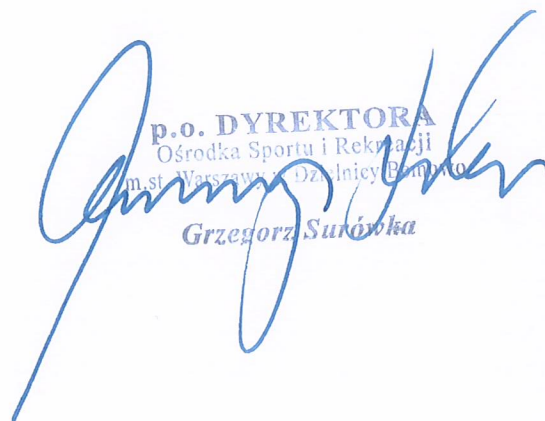 p.o. DYREKTORA
Ośrodka Sportu i Rekreacji
m.st. Warszawy w Dzielnicy Bemowo
Grzegorz Surówka